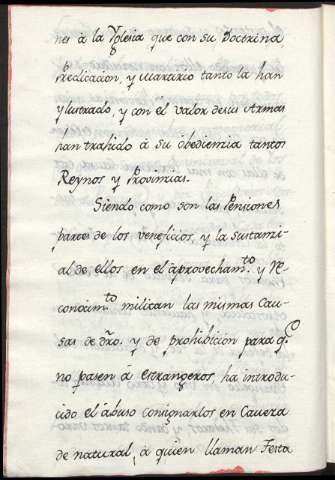 nes à la Yglesia que con su Doctrina
Predicacion, y Martirio tanto la han
ylustrado, y con el valor desus Armas
han trahido à su obediemia tantos
Reynos y Provimias.
Siendo como son las Pensiones
parte de los veneficios, y la sustami-
al de ellos en el aprovecham.to y re-
conocim.to militan las mismas Cau-
sas de dro. y de prohibicion para q.e
no pasen à estrangeros ha introdu-
cido el abuso consignarlos en Cavera
de natural, à quien llaman Testa